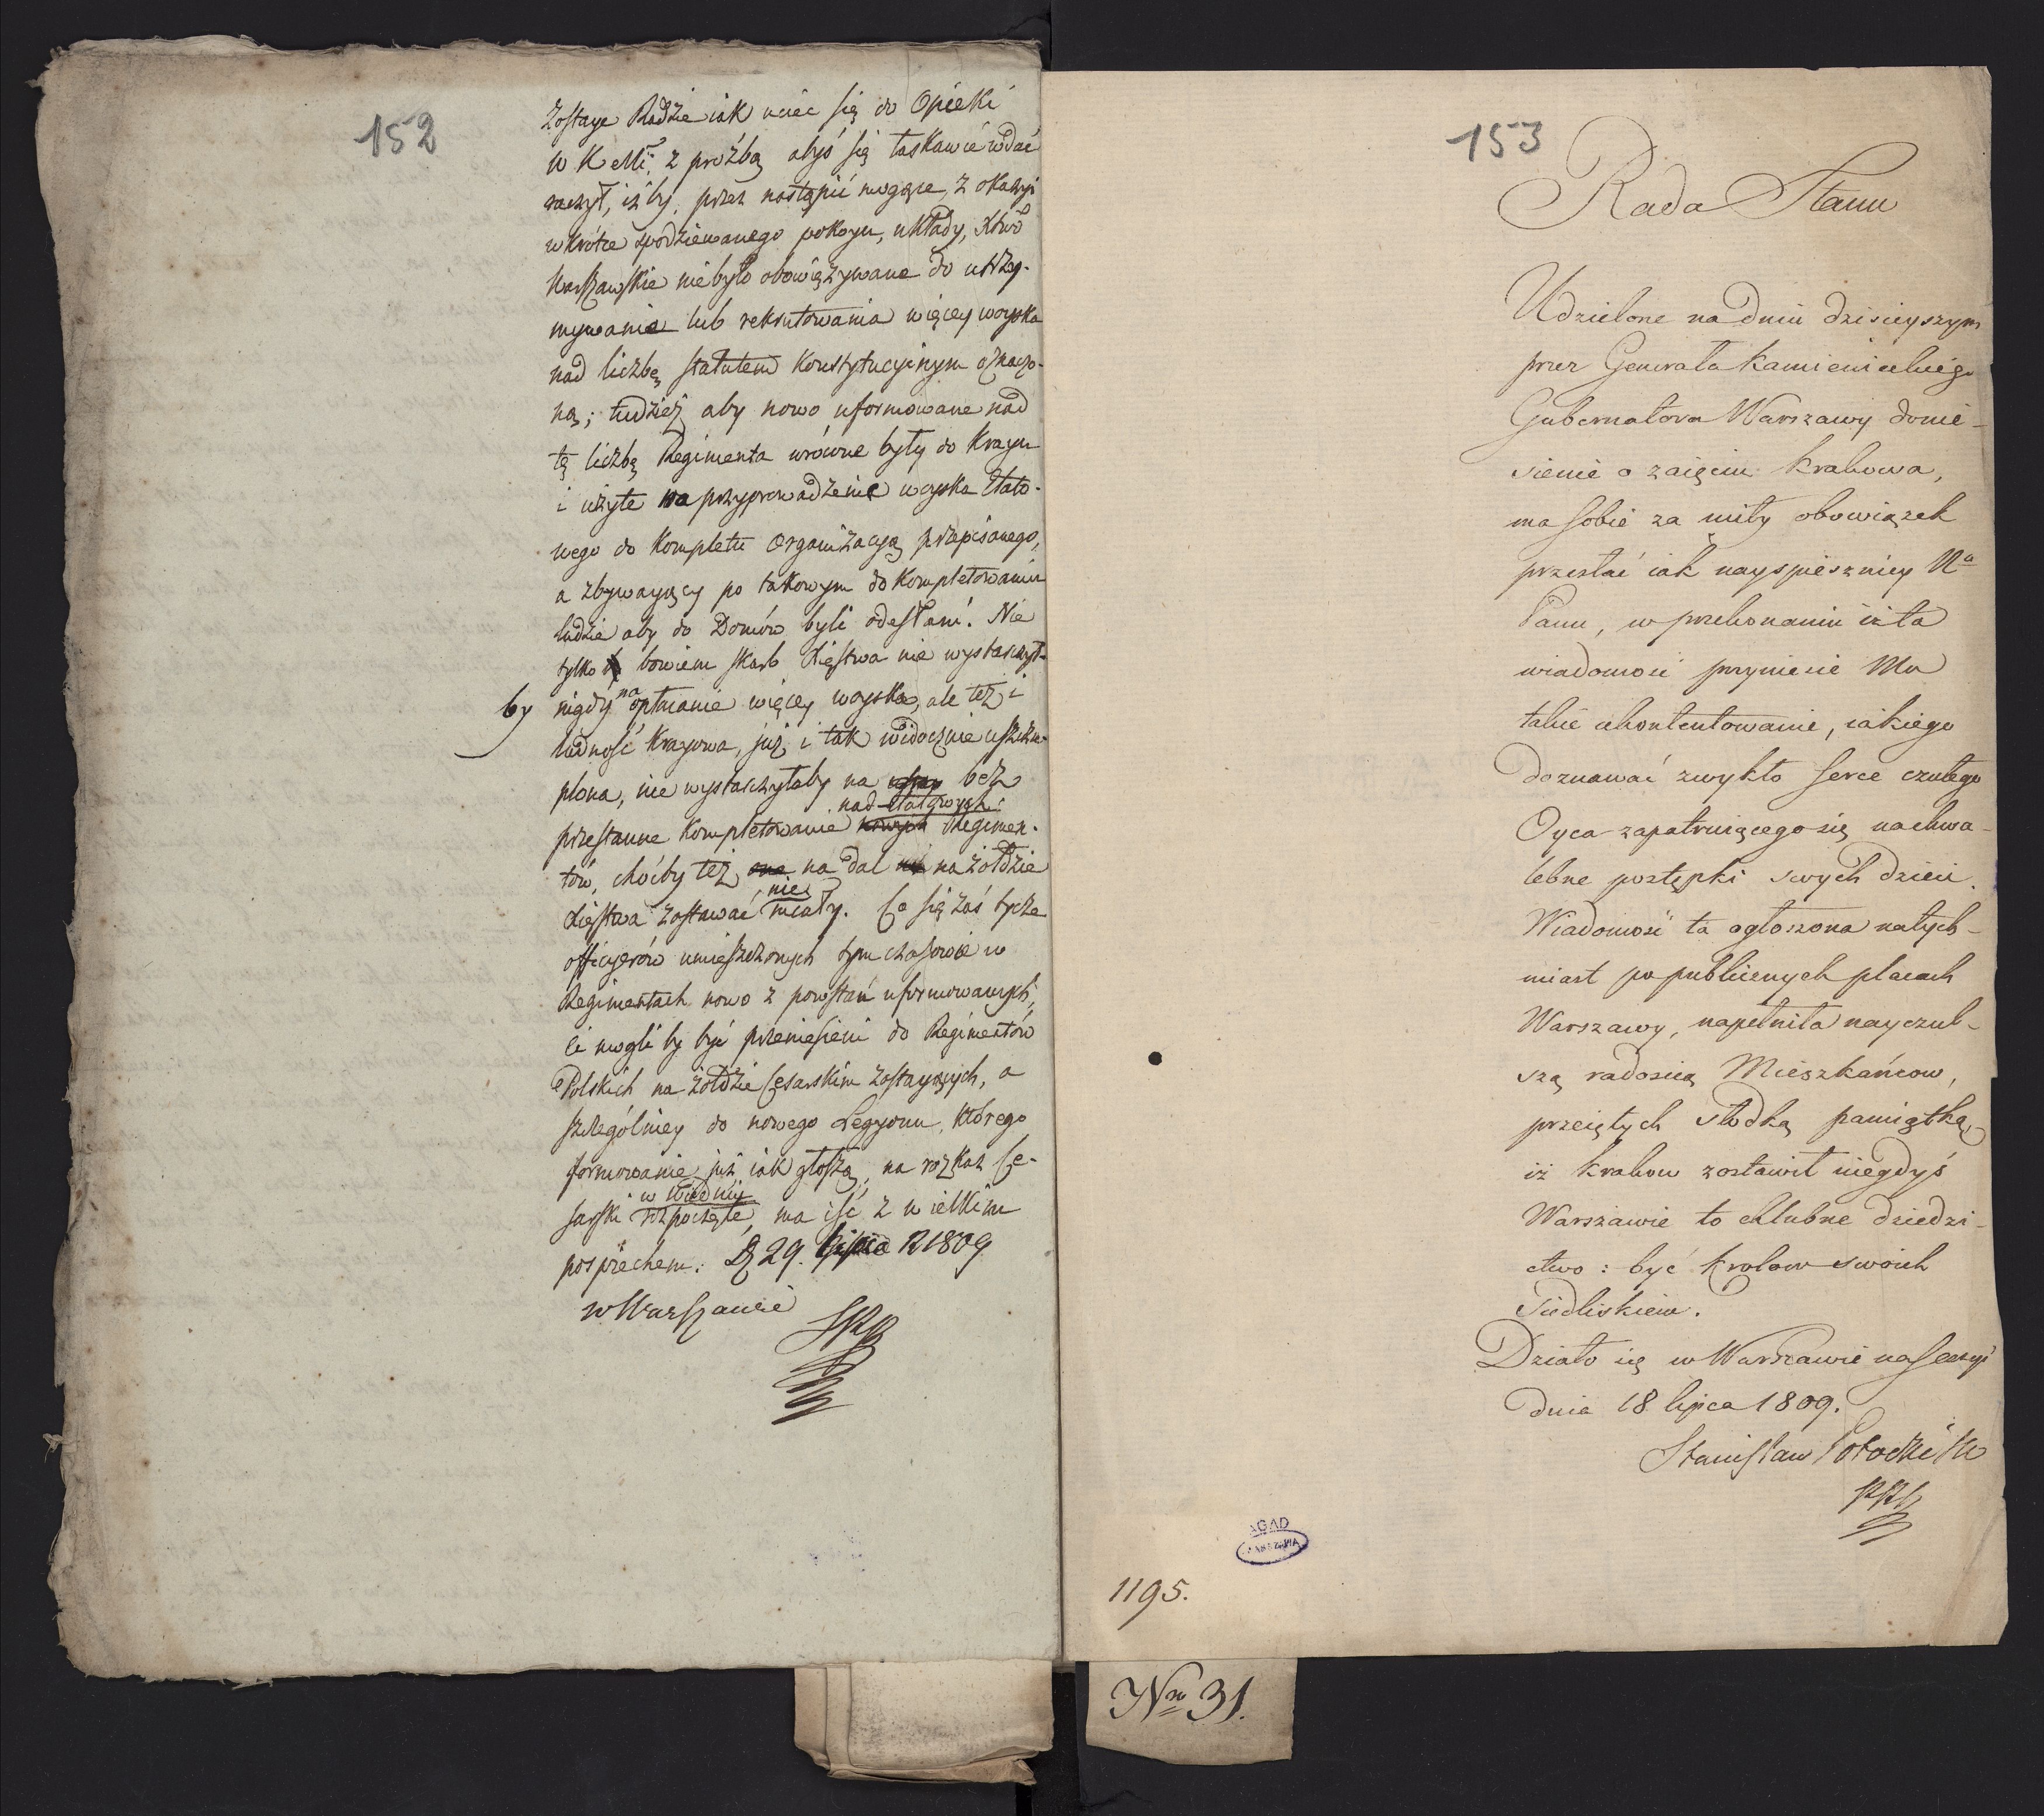 152
zostaye Radzie iak uciec się do Opieki
W K Mći, z proźbą abyś się łaskawie wdać
raczył, iżby przez nastąpić mogące, z okazyi
wkrótce spodziewanego pokoyu, układy, Xtwo
Warszawskie nie było obowiązywane do utrzy-
mywania lub rekrutowania więcey woyska
nad liczbę statutem konstytucyinym oznaczo-
ną; tudzież aby nowo uformowane nad
tę liczbę Regimenta wrócone były do Kraju
i użyte na przyprowadzenie woyska etato-
wego do kompletu Organizacyą przepisanego,
a zbywaiący po takowym do kompletowaniu
ludzie aby do Domów byli odesłani. Nie
tylko bowiem skarb Xięstwa nie wystarczył-
by nigdy na opłacanie więcey woyska, ale też i
ludność krajowa, już i tak widocznie uszczu-
plona, nie wystarczyłaby na bez
nad-etatowych
przestanne kompletowanie nowych Regimen-
tów, choćby też one na dal na żołdzie
Xięstwa zostawać nie miały. Co się zaś tycze
officyerów umieszczonych tymczasowie w
Regimentach nowo z powstań uformowanych,
ci mogli by być przeniesieni do Regimentów
Polskich na żołdzie Cesarskim zostaiących, a
szczególniey do nowego Legyonu, którego
formowanie już iak głoszą, na rozkaz Ce-
sarski w Wiedniu rozpoczęte, ma iść z wielkim
pospiechem. D 29. lipca R 1809
w Warszawie
153
Rada Stanu
Udzielone na dniu dzisieyszym
przez Generała Kamienieckiego
Gubernatora Warszawy donie-
sienie o zaięciu Krakowa,
ma sobie za miły obowiązek
przesłać iak nayspieszniey Na
Panu, w przekonaniu iż ta
wiadomość przyniesie Mu
takie ukontentowanie, iakiego
doznawać zwykło serce czułego
Oyca zapatruiącego się na chwa-
lebne postępki swych dzieci.
Wiadomość ta ogłoszona natych-
miast po publicznych placach
Warszawy, napełniła nayczul-
szą radością Mieszkańcow,
przeiętych słodką pamiątką,
iż Krakow zostawił niegdyś
Warszawie to chlubne dziedzi-
ctwo: być Krolow swoich
Siedliskiem.
Działo się w Warszawie na Sessyi
dnia 18 lipca 1809.
Stanisław Potocki
AGAD
WARSZAWA
1195.
Nro 31.